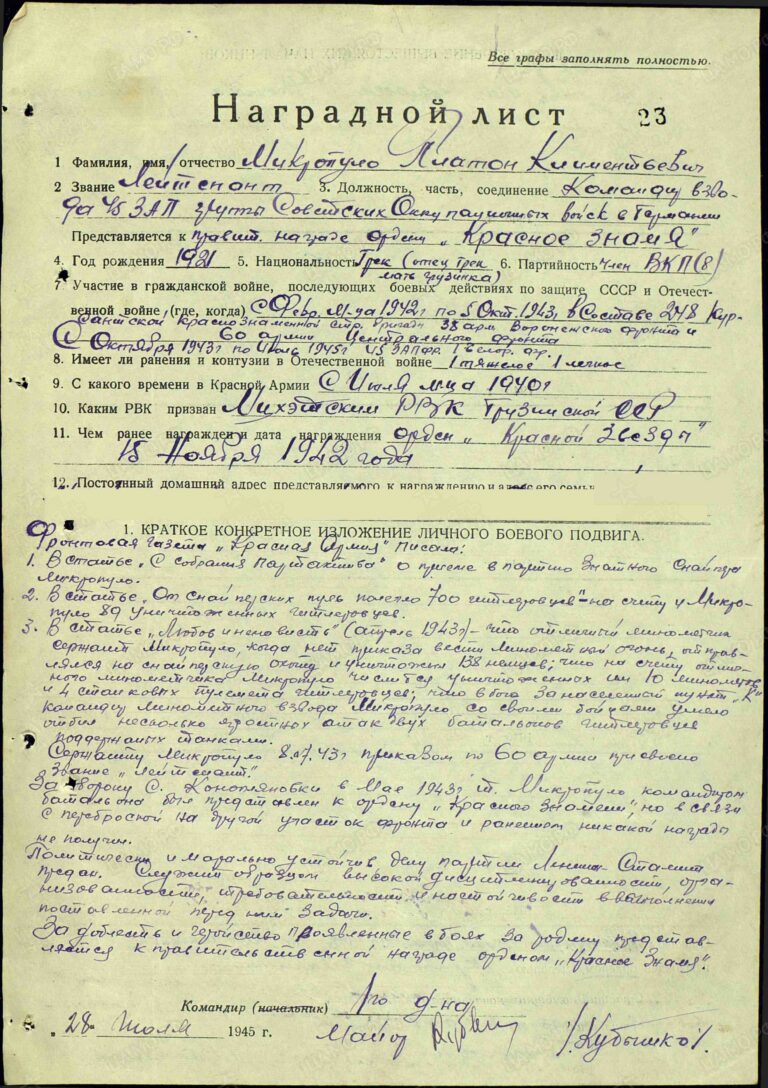 Все графы заполнять полностью.
Наградной лист 23
1 Фамилия, имя, отчество Микропуло Платон Климентьевич
2 Звание Лейтенант 3. Должность, часть, соединение Командир взво-
да 45 ЗАП группы Советских Оккупационных войск в Германии
Представляется к правит. награде ордену „Красное Знамя"
4. Год рождения 1921 5. Национальность Грек (отец грек 6. Партийность Член ВКП(б)
мать грузинка)
7 Участие в гражданской войне, последующих боевых действиях по защите СССР и Отечест-
венной войне (где, когда) с Февр. М-ца 1942г по 5 Окт. 1943г в Составе 248 Кур-
сантской краснознаменной стр. бригады 38 арм Воронежского фронта и
60 армии Центрального фронта
С Октября 1943г по Июль 1945г 45 ЗАП 1 Белор. фр.
8. Имеет ли ранения и контузии в Отечественной войне 1 тяжелое 1 легкое
9. С какого времени в Красной Армии С Июля м-ца 1940г
10. Каким РВК призван Михэтским РВК Грузинской ССР
11. Чем ранее награжден и дата награждения орден „Красной Звезды"
15 Ноября 1942 года
12. Постоянный домашний адрес представляемого к награждению и адрес его семьи
1. КРАТКОЕ КОНКРЕТНОЕ ИЗЛОЖЕНИЕ ЛИЧНОГО БОЕВОГО ПОДВИГА.
Фронтовая газета „Красная Армия" писала:
1. В статье „С собрания Партактива" о приеме в партию Знатного Снайпера
Микропуло.
2. В статье „От снайперских пуль полегло 700 гитлеровцев" – на счету у Микро-
пуло 89 уничтоженных гитлеровцев.
3. В статье „Любов и ненависть" (апрель 1943г) – что отличный минометчик
сержант Микропуло, когда нет приказа вести минометный огонь, отправ-
лялся на снайперскую охоту и уничтожил 138 немцев; что на счету отлич-
ного минометчика Микропуло числится уничтоженных им 10 минометов
и 4 станковых пулемета гитлеровцев; что в бою за населенный пункт „К"
командир минометного взвода Микропуло со своими бойцами умело
отбил несколько яростных атак двух батальонов гитлеровцев
поддержаных танками.
Сержанту Микропуло 8.7.43г приказом по 60 армии присвоено
звание „Лейтенант".
За оборону С. Конопляновки в Мае 1943г т. Микропуло командиром
батальона был представлен к ордену „Красного Знамени", но в связи
с переброской на другой участок фронта и ранением никакой награды
не получил.
Политически и морально устойчив делу партии Ленина-Сталина
предан. Служит образцом высокой дисциплинированности, орга-
низованности, требовательности и настойчивости в выполнении
поставленной перед ним задачи.
За доблесть и геройство проявленные в боях за родину представ-
ляется к правительственной награде орденом „Красное Знамя".
Командир (начальник) 1го д-на
„28" Июля 1945 г. Майор /Кубышко/.